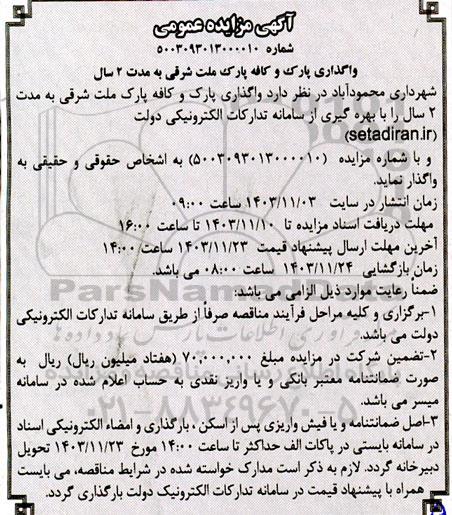 آگهی مزایده عمومی
شماره ۵۰۰۳۰۹۳۰۱۳۰۰۰۰۱۰
واگذاری پارک و کافه پارک ملت شرقی به مدت ۲ سال
شهرداری محمودآباد در نظر دارد واگذاری پارک و کافه پارک ملت شرقی به مدت
۲ سال را با بهره گیری از سامانه تدارکات الکترونیکی دولت
(setadiran.ir)
و با شماره مزایده (۵۰۰۳۰۹۳۰۱۳۰۰۰۰۱۰) به اشخاص حقوقی و حقیقی به
واگذار نماید.
زمان انتشار در سایت ۱۴۰۳/۱۱/۰۳ ساعت ۰۹:۰۰
مهلت دریافت اسناد مزایده تا ۱۴۰۳/۱۱/۱۰ تا ساعت ۱۶:۰۰
آخرین مهلت ارسال پیشنهاد قیمت ۱۴۰۳/۱۱/۲۳ ساعت ۱۴:۰۰
زمان بازگشایی ۱۴۰۳/۱۱/۲۴ ساعت ۰۸:۰۰ می باشد.
ضمنا رعایت موارد ذیل الزامی می باشد:
۱-برگزاری و کلیه مراحل فرآیند مناقصه صرفاً از طریق سامانه تدارکات الکترونیکی
دولت می باشد.
۲-تضمین شرکت در مزایده مبلغ ۷۰,۰۰۰,۰۰۰ (هفتاد میلیون ریال) ریال به
صورت ضمانتنامه معتبر بانکی و یا واریز نقدی به حساب اعلام شده در سامانه
میسر می باشد.
۳-اصل ضمانتنامه و یا فیش واریزی پس از اسکن ، بارگذاری و امضاء الکترونیکی اسناد
در سامانه بایستی در پاکات الف حداکثر تا ساعت ۱۴:۰۰ مورخ ۱۴۰۳/۱۱/۲۳ تحویل
دبیرخانه گردد. لازم به ذکر است مدارک خواسته شده در شرایط مناقصه، می بایست
همراه با پیشنهاد قیمت در سامانه تدارکات الکترونیک دولت بارگذاری گردد.
ParsNamadData
۰۲۱-۸۸۳۴۹۶۷۰-۵